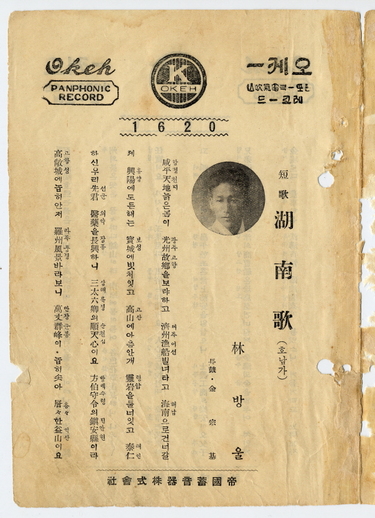 Okeh
PANPHONIC
RECORD
K
OKEH
오케ー
레코ー드
1620
短歌 湖南歌 (호남가)
林방울
長鼓・金宗基
咸平天地늙은몸이 光州故鄕을보랴하고 濟州漁船빌녀타고 海南으로건너갈
제 興陽에도든해는 寶城에빗처잇고 高山에아츰안개 靈岩을둘너잇고 泰仁
하신우리先君 醫藥을長興하니 三太六卿의順天心이요 方伯守令의鎭安縣이라
高敞城에놉히안저 羅州風景바라보니 萬丈群峰이・놉히소사 層々한益山이요
帝國蓄音器株式會社